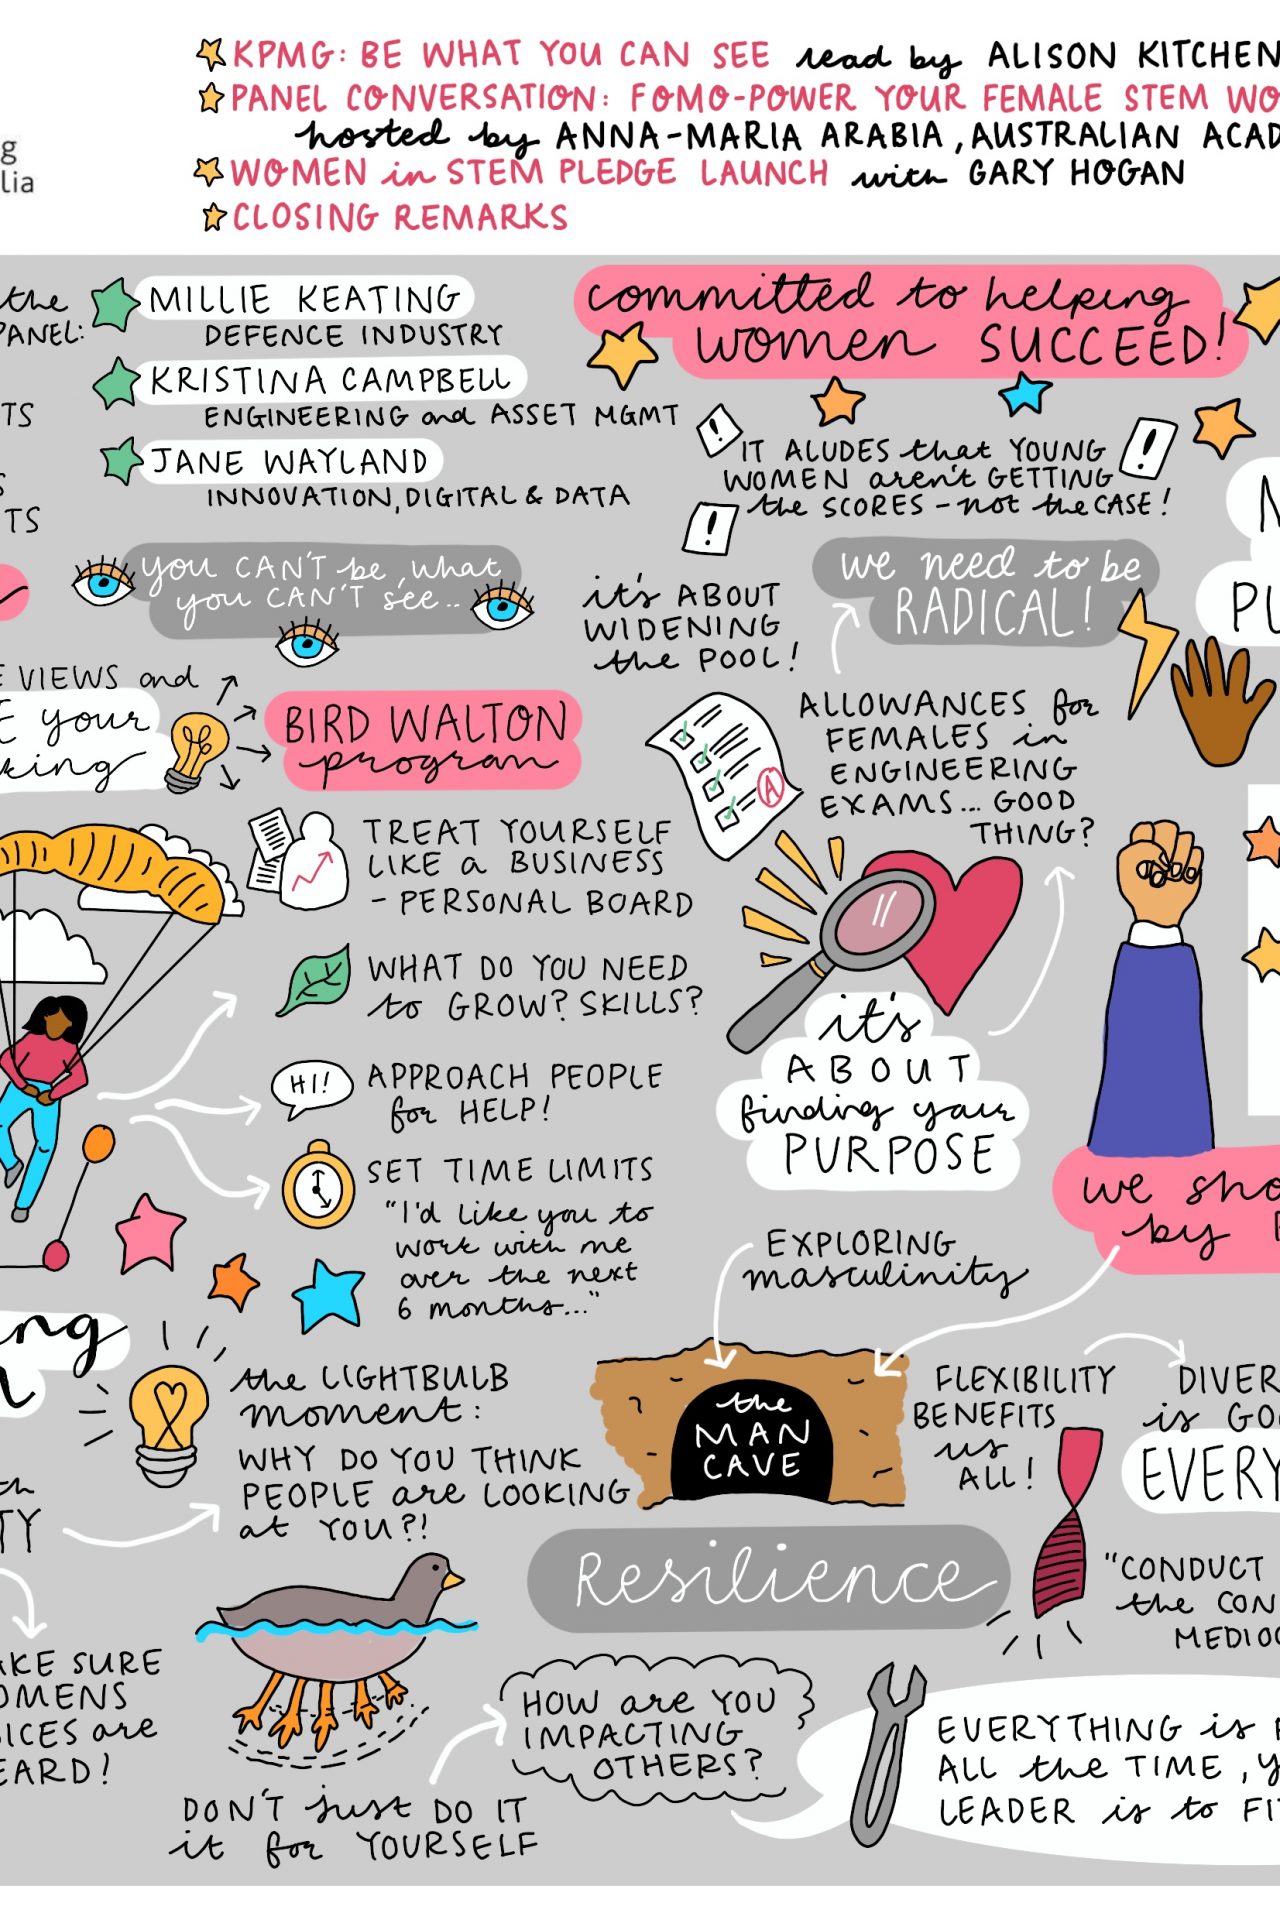 KPMG: BE WHAT YOU CAN SEE read by ALISON KITCHEN
PANEL CONVERSATION: FOMO-POWER YOUR FEMALE STEM WO
hosted by ANNA-MARIA ARABIA, AUSTRALIAN ACAD
WOMEN in STEM PLEDGE LAUNCH with GARY HOGAN
CLOSING REMARKS
g
lia
the
PANEL:
TS
S
TS
MILLIE KEATING
DEFENCE INDUSTRY
KRISTINA CAMPBELL
ENGINEERING and ASSET MGMT
JANE WAYLAND
INNOVATION, DIGITAL & DATA
committed to helping
women SUCCEED!
! IT ALUDES that YOUNG !
WOMEN aren't GETTING
! the SCORES - not the CASE!
you CAN'T be what
you CAN'T see..
it's ABOUT
WIDENING
the POOL!
we need to be
RADICAL!
N
PU
E VIEWS and
E your
king
BIRD WALTON
program
ALLOWANCES for
FEMALES in
ENGINEERING
EXAMS... GOOD
THING?
A
TREAT YOURSELF
LIKE a BUSINESS
- PERSONAL BOARD
WHAT DO YOU NEED
to GROW? SKILLS?
HI!
APPROACH PEOPLE
for HELP!
SET TIME LIMITS
"I'd like you to
work with me
over the next
6 months..."
it's
ABOUT
finding your
PURPOSE
we sho
by
EXPLORING
masculinity
the
MAN
CAVE
FLEXIBILITY
BENEFITS
us
ALL!
DIVER
is GO
EVERY
ng
the LIGHTBULB
moment:
WHY DO YOU THINK
PEOPLE are LOOKING
at YOU?!
TY
AKE SURE
OMENS
ICES are
EARD!
Resilience
"CONDUCT
the CON
MEDIOC
DON'T just DO IT
it for YOURSELF
HOW are YOU
IMPACTING
OTHERS?
EVERYTHING is
ALL the TIME, Y
LEADER is to FI